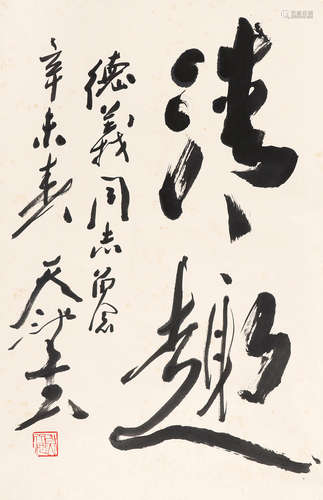 清趣
德義同志留念
辛未春
天池書